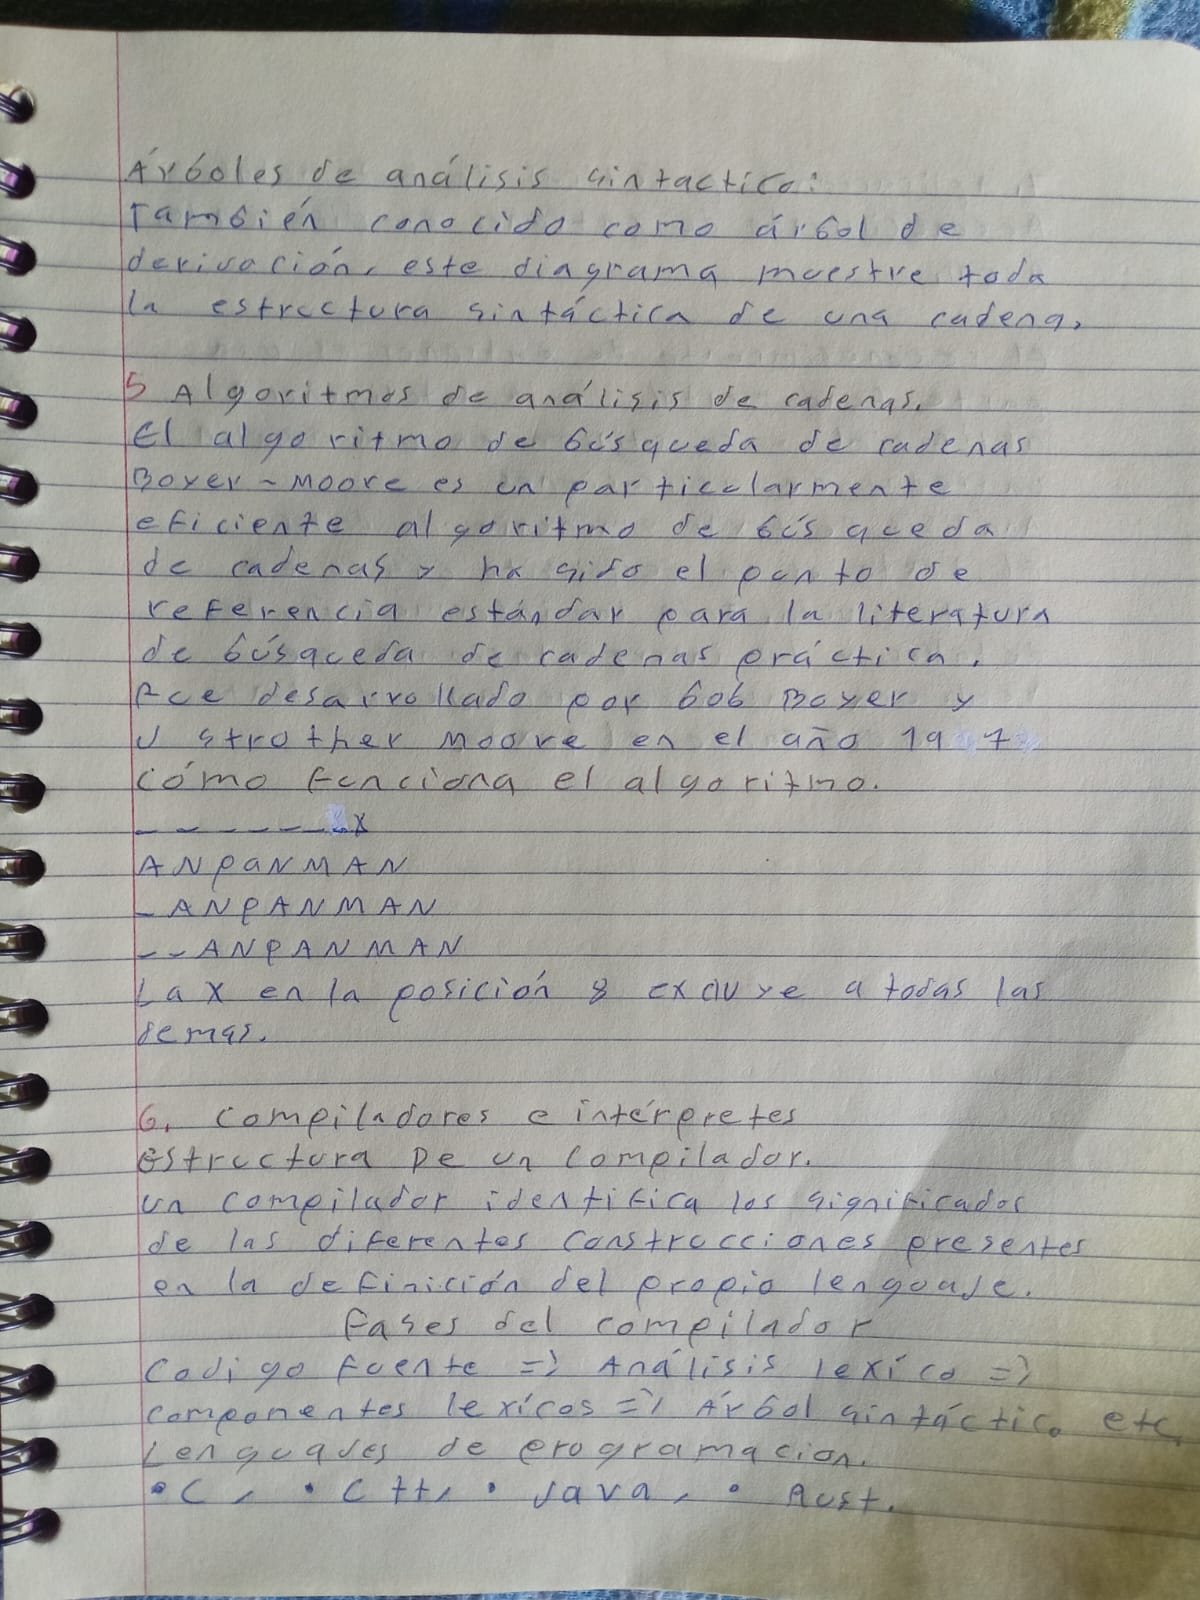 Árboles de análisis sintactico:
También conocido como árbol de
derivación, este diagrama muestre toda
la estructura sintáctica de una cadena,
5 Algoritmos de análisis de cadenas.
El algoritmo de búsqueda de cadenas
Boyer-Moore es un particularmente
eficiente algoritmo de búsqueda
de cadenas y ha sido el punto de
referencia estándar para la literatura
de búsqueda de cadenas práctica.
Fue desarrollado por bob Boyer y
J Strother Moore en el año 19 7
cómo funciona el algoritmo.
- - - - - - - X
ANPANMAN
-ANPANMAN
--ANPANMAN
La X en la posición 8 excluye a todas las
demas.
6. Compiladores e intérpretes
Estructura De un Compilador.
Un compilador identifica los significados
de las diferentes construcciones presentes
en la definición del propio lenguaje.
Fases del compilador
Codigo Fuente => Análisis lexíco =>
componentes lexícos => Árbol sintáctico etc,
Lenguajes de programacion.
•C, •C++, •Java, • Rust.